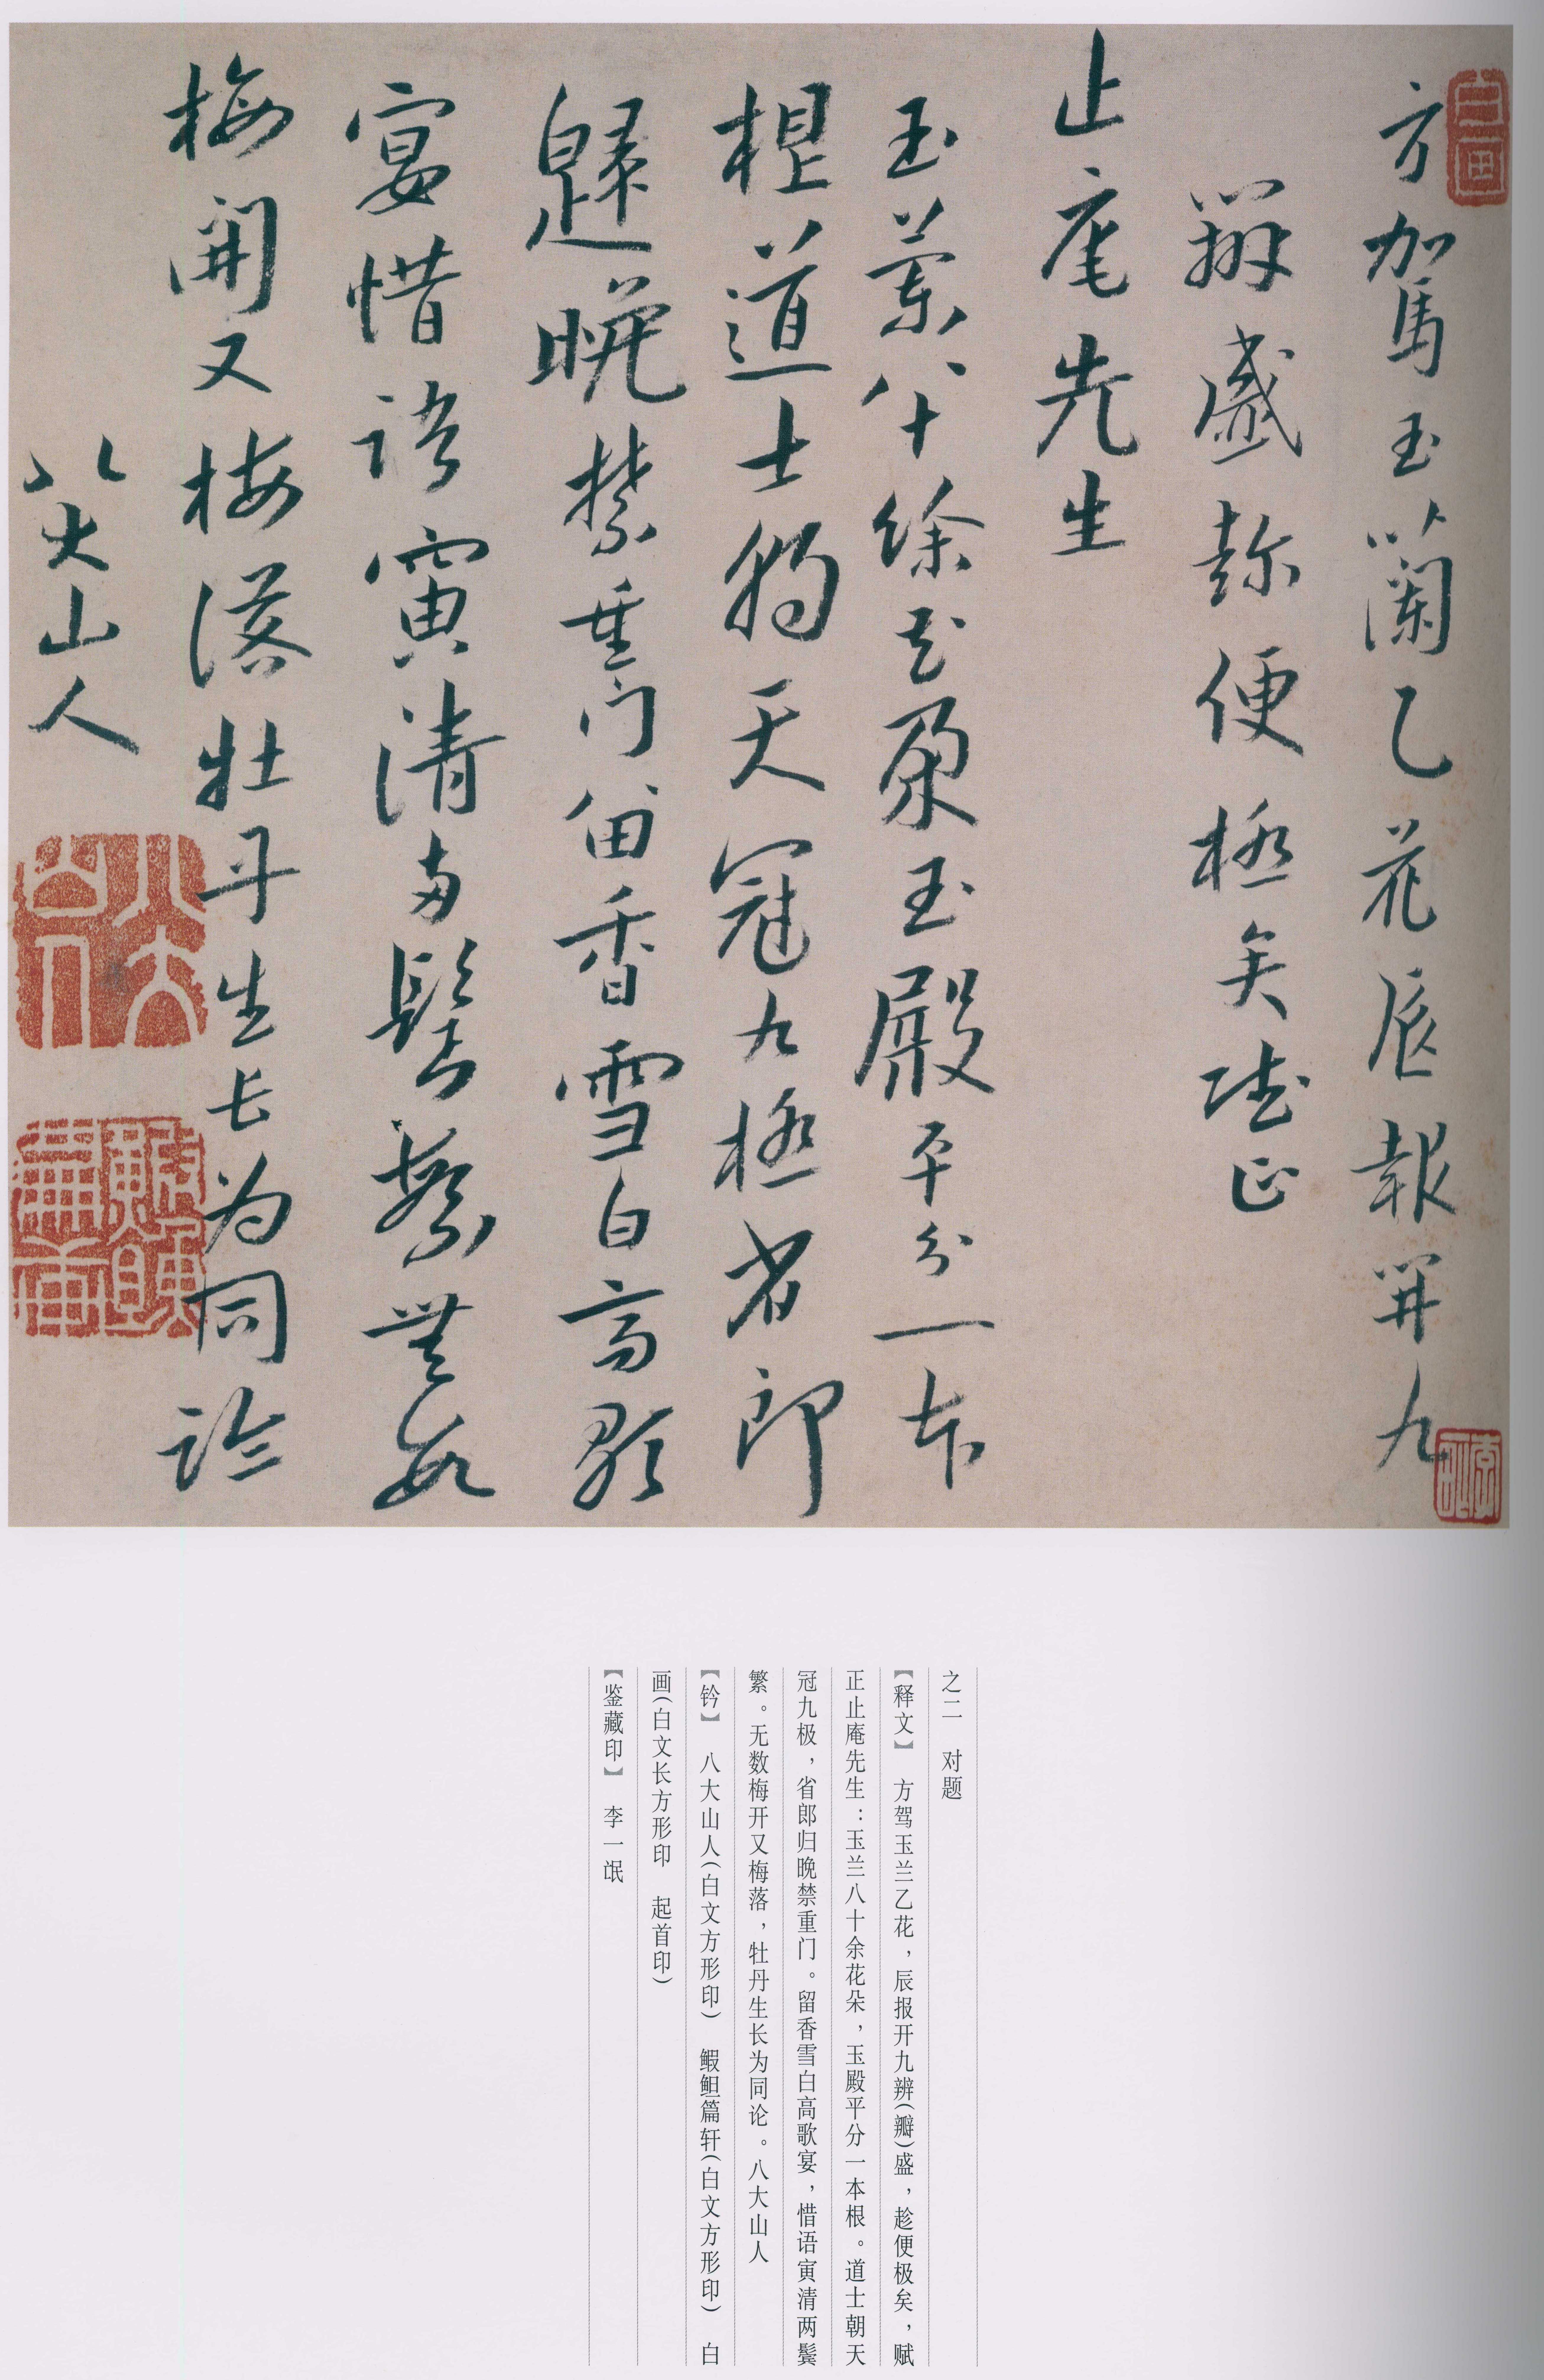 方駕玉蘭乙花辰報开九
辧盛趂便極矣賦正
止庵先生
玉蘭八十餘花朵玉殿平分一本
根道士朝天冠九極省郎
歸晚禁重门留香雪白高歌
宴惜語寅清两鬓繁無数
梅開又梅落牡丹生长为同論
八大山人
之二 对题
【释文】 方驾玉兰乙花，辰报开九辨(瓣)盛，趁便极矣，赋
正止庵先生：玉兰八十余花朵，玉殿平分一本根。道士朝天
冠九极，省郎归晚禁重门。留香雪白高歌宴，惜语寅清两鬓
繁。无数梅开又梅落，牡丹生长为同论。八大山人
【钤】 八大山人(白文方形印) 鰕䱇篇轩(白文方形印) 白
画(白文长方形印 起首印)
【鉴藏印】 李一氓